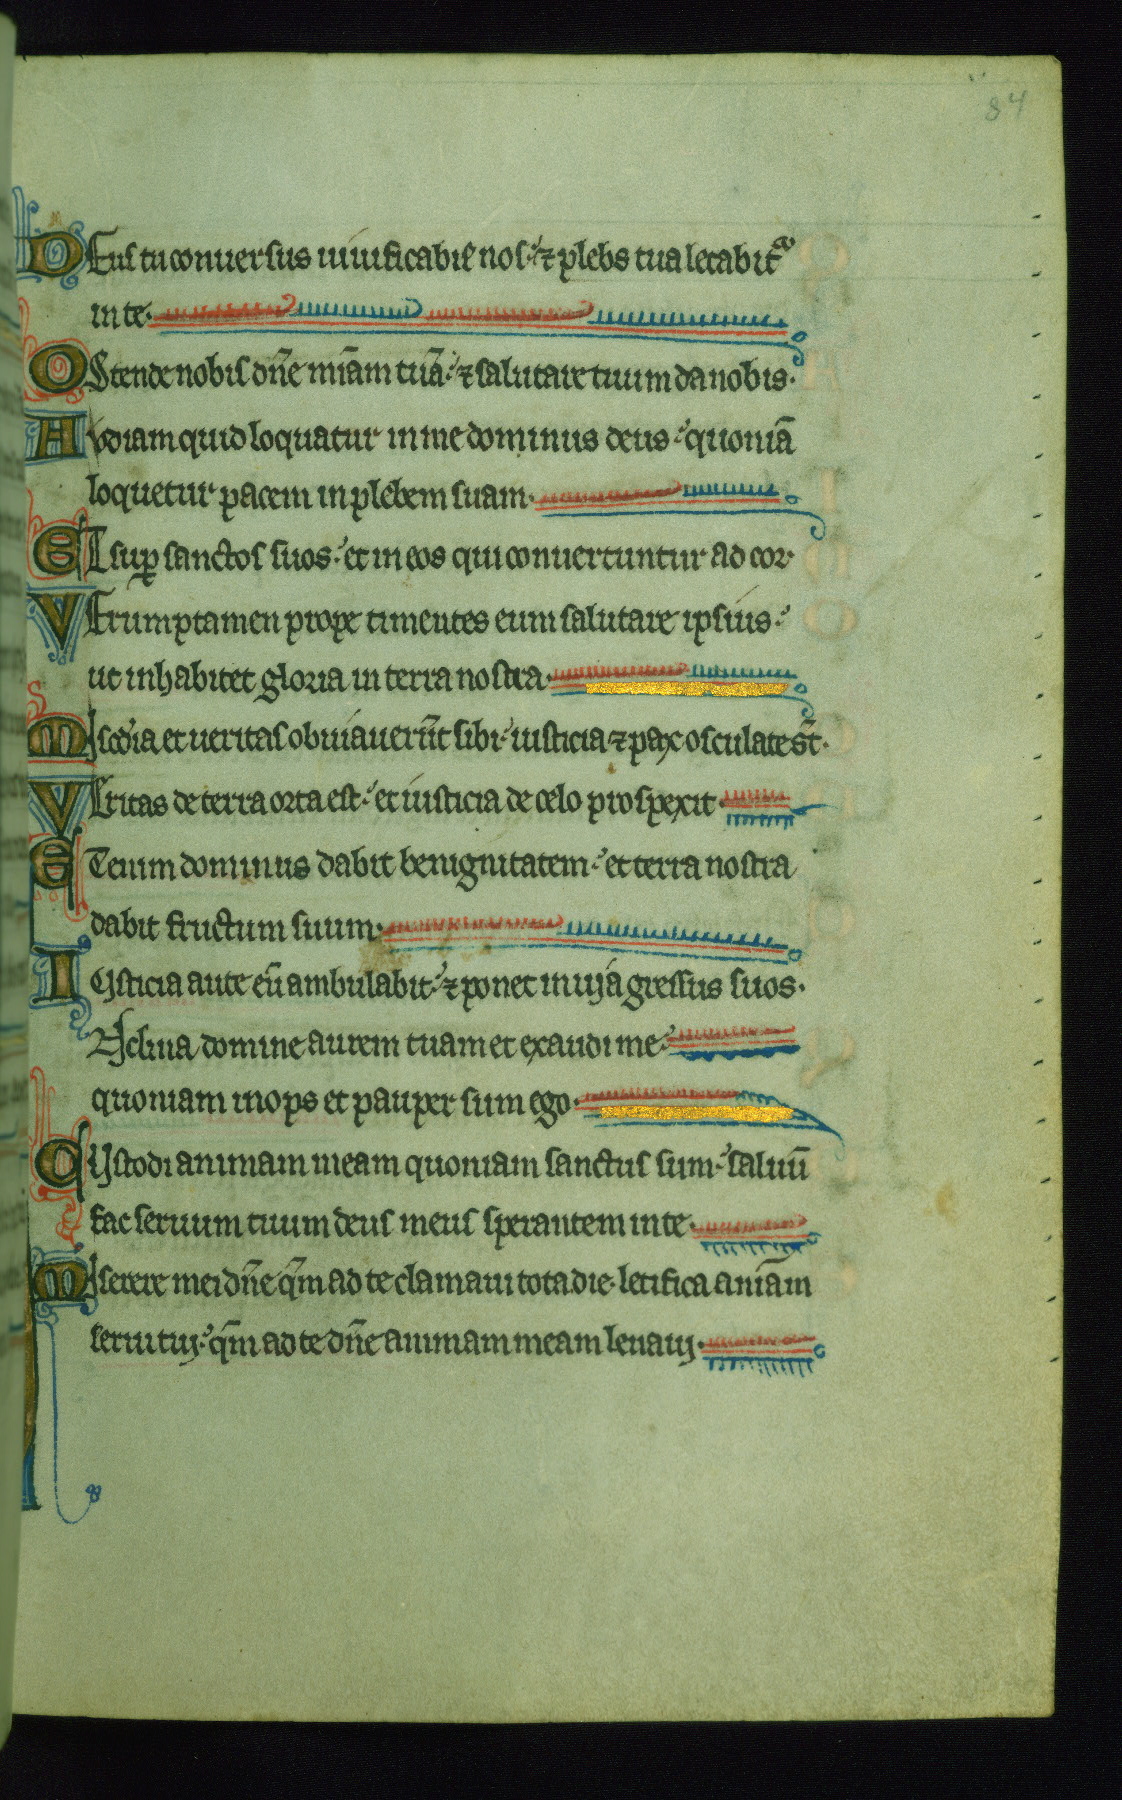 84
DEus tu conuersus uiuificabis̄ nos: ⁊ plebs tua letabit᷑
in te·
OStende nobis dn̄e mīam tuā: ⁊ salutare tuum da nobis·
Avdiam quid loquatur in me dominus deus: quoniā
loquetur pacem in plebem suam·
ET sup̱ sanctos suos: et in eos qui conuertuntur ad cor·
VErumptamen prope timentes eum salutare ipsius:
ut inhabitet gloria in terra nostra·
Miscd'ia et ueritas obuiauerūt sibi: iusticia ⁊ pax osculate sūt·
VEritas de terra orta est: et iusticia de celo prospexit·
ETenim dominus dabit benignitatem: et terra nostra
dabit fructum suum·
IUsticia ante eū ambulabit: ⁊ ponet in uia gressus suos·
INclina domine aurem tuam et exaudi me:
quoniam inops et pauper sum ego·
CUstodi animam meam quoniam sanctus sum: saluū
fac seruum tuum deus meus sperantem in te·
Miserere mei dn̄e qm̄ ad te clamaui tota die· letifica anīam
serui tui: qm̄ ad te dn̄e animam meam leuaui·